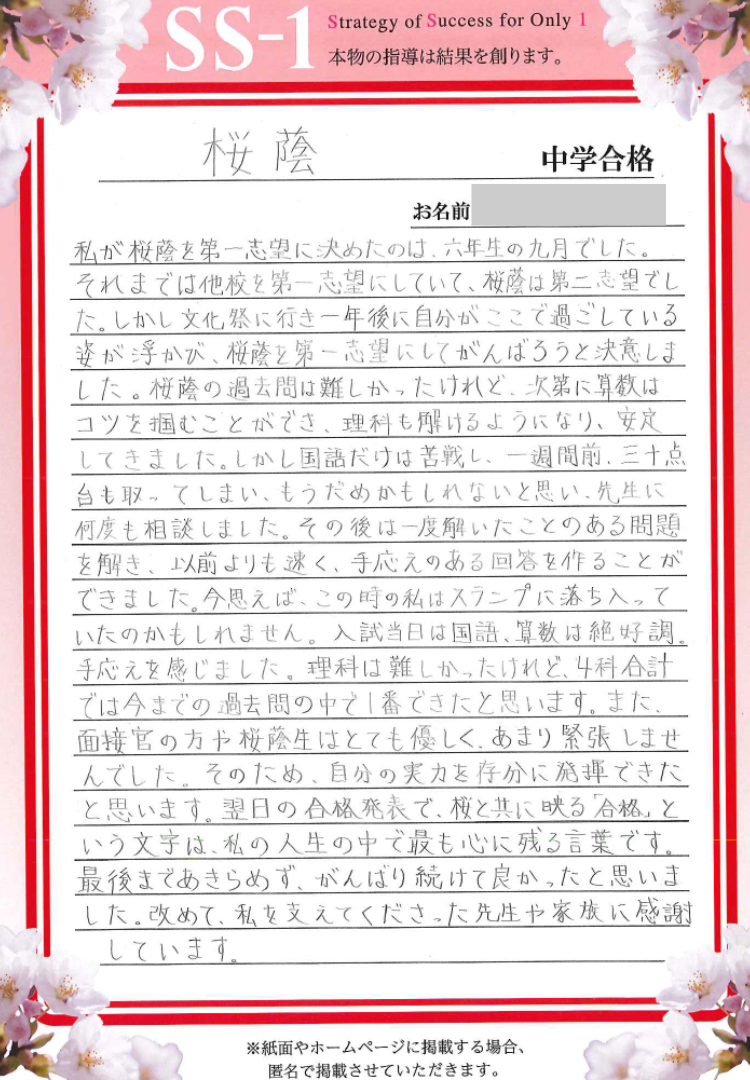 SS-1
Strategy of Success for Only 1
本物の指導は結果を創ります。
桜蔭 中学合格
お名前
私が桜蔭を第一志望に決めたのは、六年生の九月でした。
それまでは他校を第一志望にしていて、桜蔭は第二志望でし
た。しかし文化祭に行き一年後に自分がここで過ごしている
姿が浮かび、桜蔭を第一志望にしてがんばろうと決意しま
した。桜蔭の過去問は難しかったけれど、次第に算数は
コツを掴むことができ、理科も解けるようになり、安定
してきました。しかし国語だけは苦戦し、一週間前、三十点
台も取ってしまい、もうだめかもしれないと思い、先生に
何度も相談しました。その後は一度解いたことのある問題
を解き、以前よりも速く、手応えのある回答を作ることが
できました。今思えば、この時の私はスランプに落ち入って
いたのかもしれません。入試当日は国語、算数は絶好調。
手応えを感じました。理科は難しかったけれど、4科合計
では今までの過去問の中で1番できたと思います。また、
面接官の方や桜蔭生はとても優しく、あまり緊張しませ
んでした。そのため、自分の実力を存分に発揮できた
と思います。翌日の合格発表で、桜と共に映る「合格」と
いう文字は、私の人生の中で最も心に残る言葉です。
最後まであきらめず、がんばり続けて良かったと思いま
した。改めて、私を支えてくださった先生や家族に感謝
しています。
※紙面やホームページに掲載する場合、
匿名で掲載させていただきます。